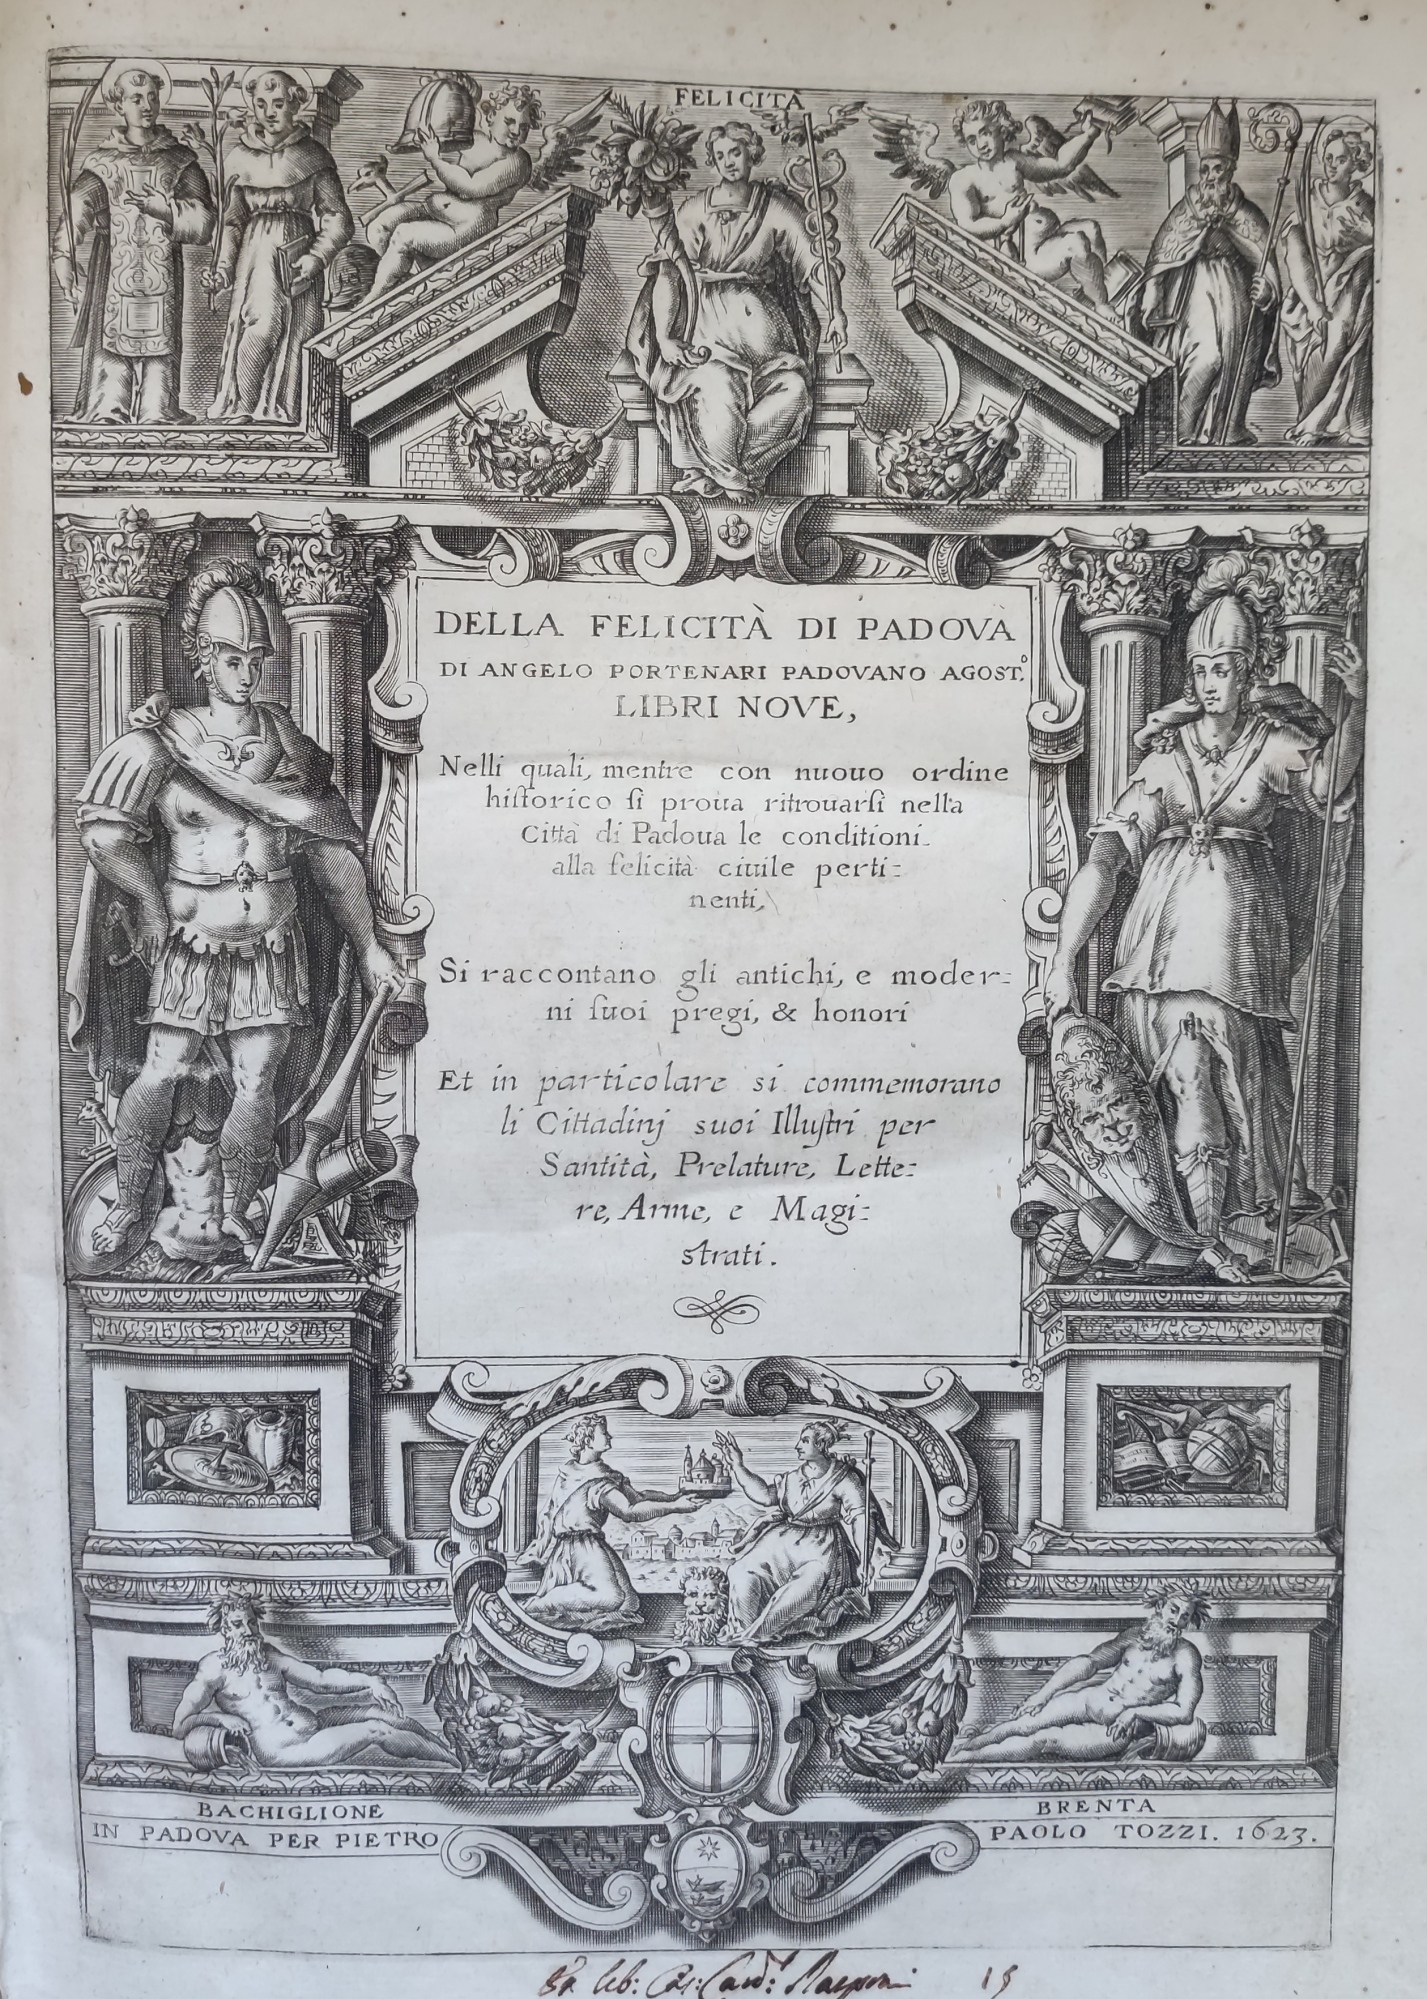 FELICITÀ
DELLA FELICITÀ DI PADOVA
DI ANGELO PORTENARI PADOVANO AGOST.º
LIBRI NOVE,
Nelli quali, mentre con nuouo ordine
historico si proua ritrouarsi nella
Città di Padoua le conditioni
alla felicità ciuile perti=
nenti,
Si raccontano gli antichi, e moder=
ni suoi pregi, & honori
Et in particolare si commemorano
li Cittadinj suoi Illustri per
Santità, Prelature, Lette=
re, Arme, e Magi=
strati.
BACHIGLIONE
BRENTA
IN PADOVA PER PIETRO PAOLO TOZZI. 1623.